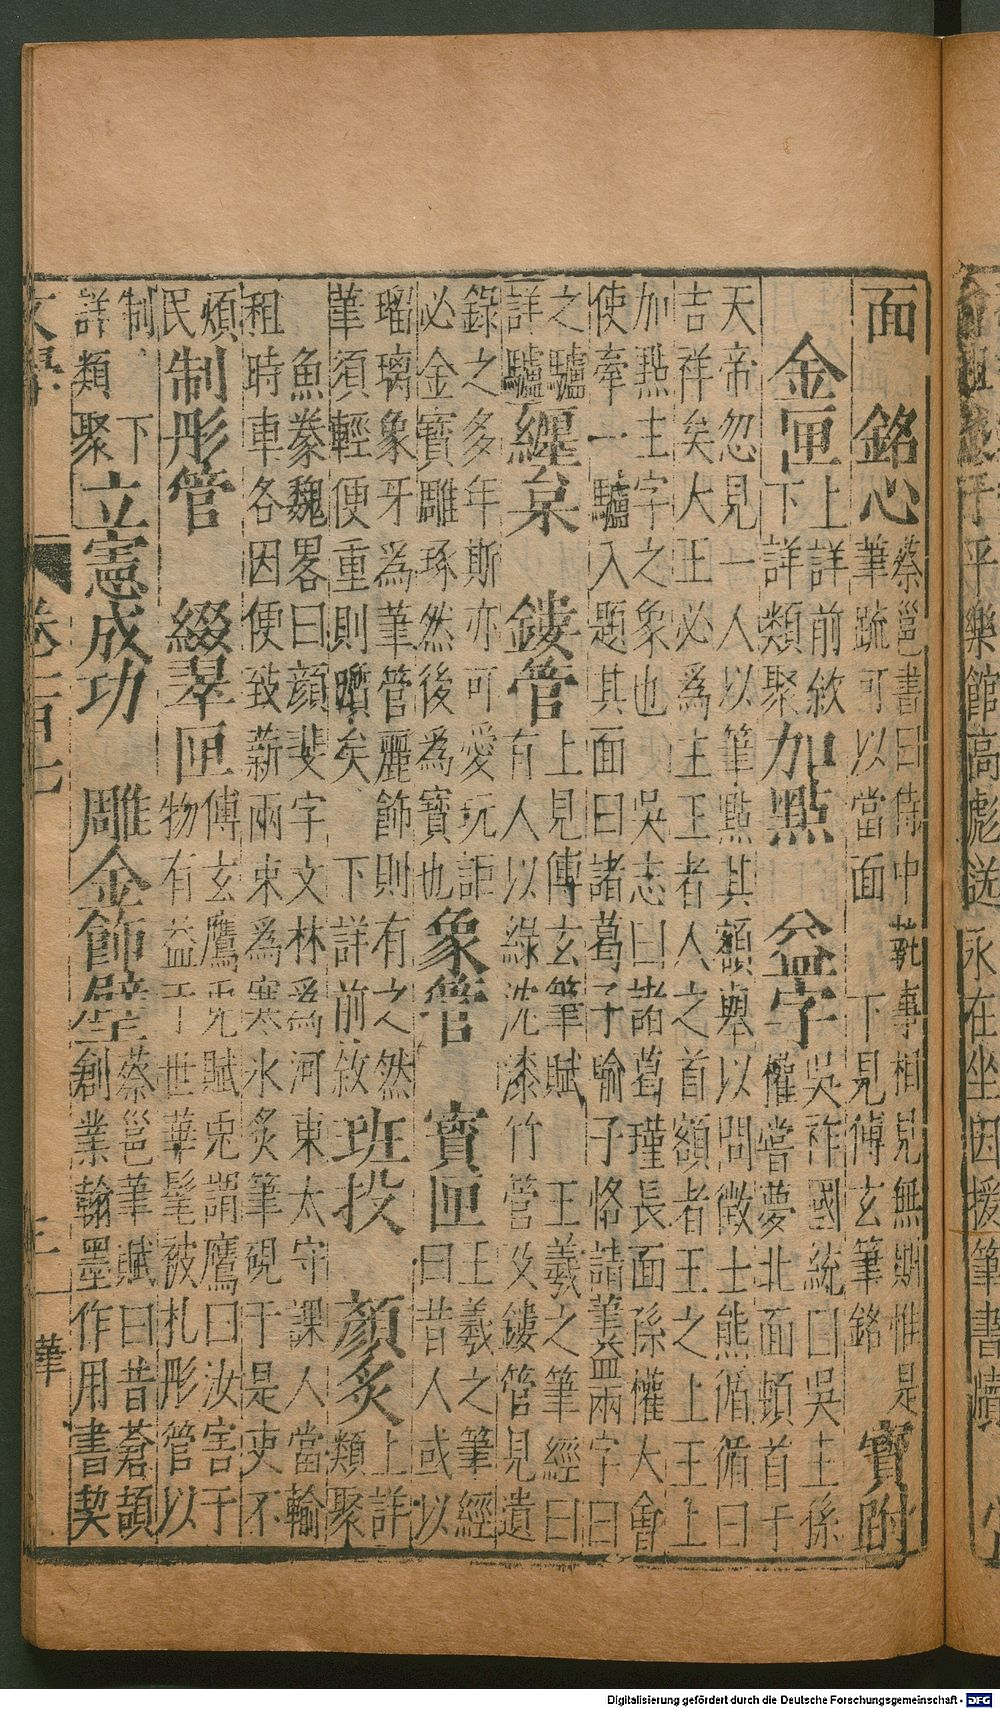 面 銘心 蔡邕書曰侍中執事相見無期惟是
筆疏可以當面 下見傅玄筆銘 寶跗
金匣 上詳前敘
下詳類聚 加點 益字 吳祚國統曰吳主孫
權嘗夢北面頓首于
天帝忽見一人以筆點其額輿以問徵士熊循循曰
吉祥矣大王必為主王者人之首額者王之上王上
加點主字之象也 吳志曰諸葛瑾長面孫權大會
使牽一驢入題其面曰諸葛子喻子恪請筆益兩字曰
之驢
詳驢 纏枲 鏤管 上見傅玄筆賦 王羲之筆經曰
有人以綠沈漆竹管及鏤管見遺
錄之多年斯亦可愛玩詎
必金寶雕琢然後為寶也 象管 寶匣 王羲之筆經
曰昔人或以
瑠璃象牙為筆管麗飾則有之然
筆須輕便重則躓矣 下詳前敘 班投 顏炙 上詳
類聚
魚豢魏畧曰顏斐字文林為河東太守課人當輸
租時車各因便致薪兩束為寒氷炙筆硯于是吏不
煩
民 制彤管 綴翠匣 傅玄鷹兎賦兎謂鷹曰汝害于
物有益于世華髦被札彤管以
制 下
詳類聚 立憲成功 雕金飾璧 蔡邕筆賦曰昔蒼頡
創業翰墨作用書契
文學 卷二百七 三 華
子平樂館高彪送 永在坐因援筆書牘
Digitalisierung gefördert durch die Deutsche Forschungsgemeinschaft - DFG